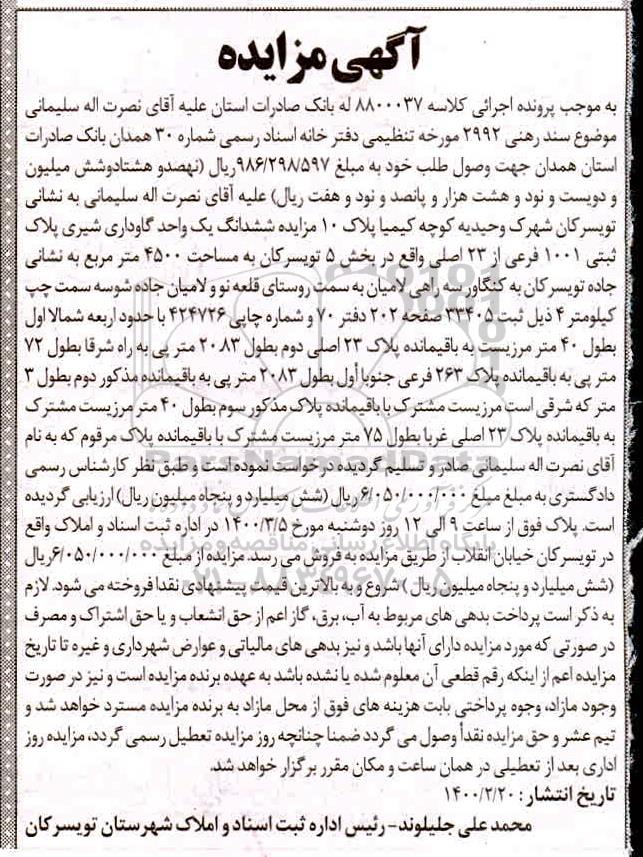 آگهی مزایده
به موجب پرونده اجرائی کلاسه ۸۸۰۰۰۳۷ له بانک صادرات استان علیه آقای نصرت اله سلیمانی
موضوع سند رهنی ۲۹۹۲ مورخه تنظیمی دفتر خانه اسناد رسمی شماره ۳۰ همدان بانک صادرات
استان همدان جهت وصول طلب خود به مبلغ ۹۸۶/۲۹۸/۵۹۷ریال (نهصدو هشتادوشش میلیون
و دویست و نود و هشت هزار و پانصد و نود و هفت ریال) علیه آقای نصرت اله سلیمانی به نشانی
تویسرکان شهرک وحیدیه کوچه کیمیا پلاک ۱۰ مزایده ششدانگ یک واحد گاوداری شیری پلاک
ثبتی ۱۰۰۱ فرعی از ۲۳ اصلی واقع در بخش ۵ تویسرکان به مساحت ۴۵۰۰ متر مربع به نشانی
جاده تویسرکان به کنگاور سه راهی لامیان به سمت روستای قلعه نو و لامیان جاده شوسه سمت چپ
کیلومتر ۴ ذیل ثبت ۳۳۴۰۵ صفحه ۲۰۲ دفتر ۷۰ و شماره چاپی ۴۲۴۷۲۶ با حدود اربعه شمالا اول
بطول ۴۰ متر مرزیست به باقیمانده پلاک ۲۳ اصلی دوم بطول ۲۰۸۳ متر پی به راه شرقا بطول ۷۲
متر پی به باقیمانده پلاک ۲۶۳ فرعی جنوبا أول بطول ۲۰۸۳ متر پی به باقیمانده مذکور دوم بطول ۳
متر که شرقی است مرزیست مشترک با باقیمانده پلاک مذکور سوم بطول ۴۰ متر مرزیست مشترک
به باقیمانده پلاک ۲۳ اصلی غربا بطول ۷۵ متر مرزیست مشترک با باقیمانده پلاک مرقوم که به نام
آقای نصرت اله سلیمانی صادر و تسلیم گردیده درخواست نموده است و طبق نظر کارشناس رسمی
دادگستری به مبلغ مبلغ ۶/۰۵۰/۰۰۰/۰۰۰ ریال (شش میلیارد و پنجاه میلیون ریال) ارزیابی گردیده
است. پلاک فوق از ساعت ۹ الی ۱۲ روز دوشنبه مورخ ۱۴۰۰/۳/۵ در اداره ثبت اسناد و املاک واقع
در تویسرکان خیابان انقلاب از طریق مزایده به فروش می رسد. مزایده از مبلغ ۶/۰۵۰/۰۰۰/۰۰۰ریال
(شش میلیارد و پنجاه میلیون ریال) شروع و به بالاترین قیمت پیشنهادی نقدا فروخته می شود. لازم
به ذکر است پرداخت بدهی های مربوط به آب، برق، گاز اعم از حق انشعاب و یا حق اشتراک و مصرف
در صورتی که مورد مزایده دارای آنها باشد و نیز بدهی های مالیاتی و عوارض شهرداری و غیره تا تاریخ
مزایده اعم از اینکه رقم قطعی آن معلوم شده یا نشده باشد به عهده برنده مزایده است و نیز در صورت
وجود مازاد، وجوه پرداختی بابت هزینه های فوق از محل مازاد به برنده مزایده مسترد خواهد شد و
نیم عشر و حق مزایده نقداً وصول می گردد ضمنا چنانچه روز مزایده تعطیل رسمی گردد، مزایده روز
اداری بعد از تعطیلی در همان ساعت و مکان مقرر برگزار خواهد شد.
تاریخ انتشار : ۱۴۰۰/۲/۲۰
محمد علی جلیلوند- رئیس اداره ثبت اسناد و املاک شهرستان تویسرکان
ParsNamadData
پایگاه اطلاع رسانی مناقصه و مزایده